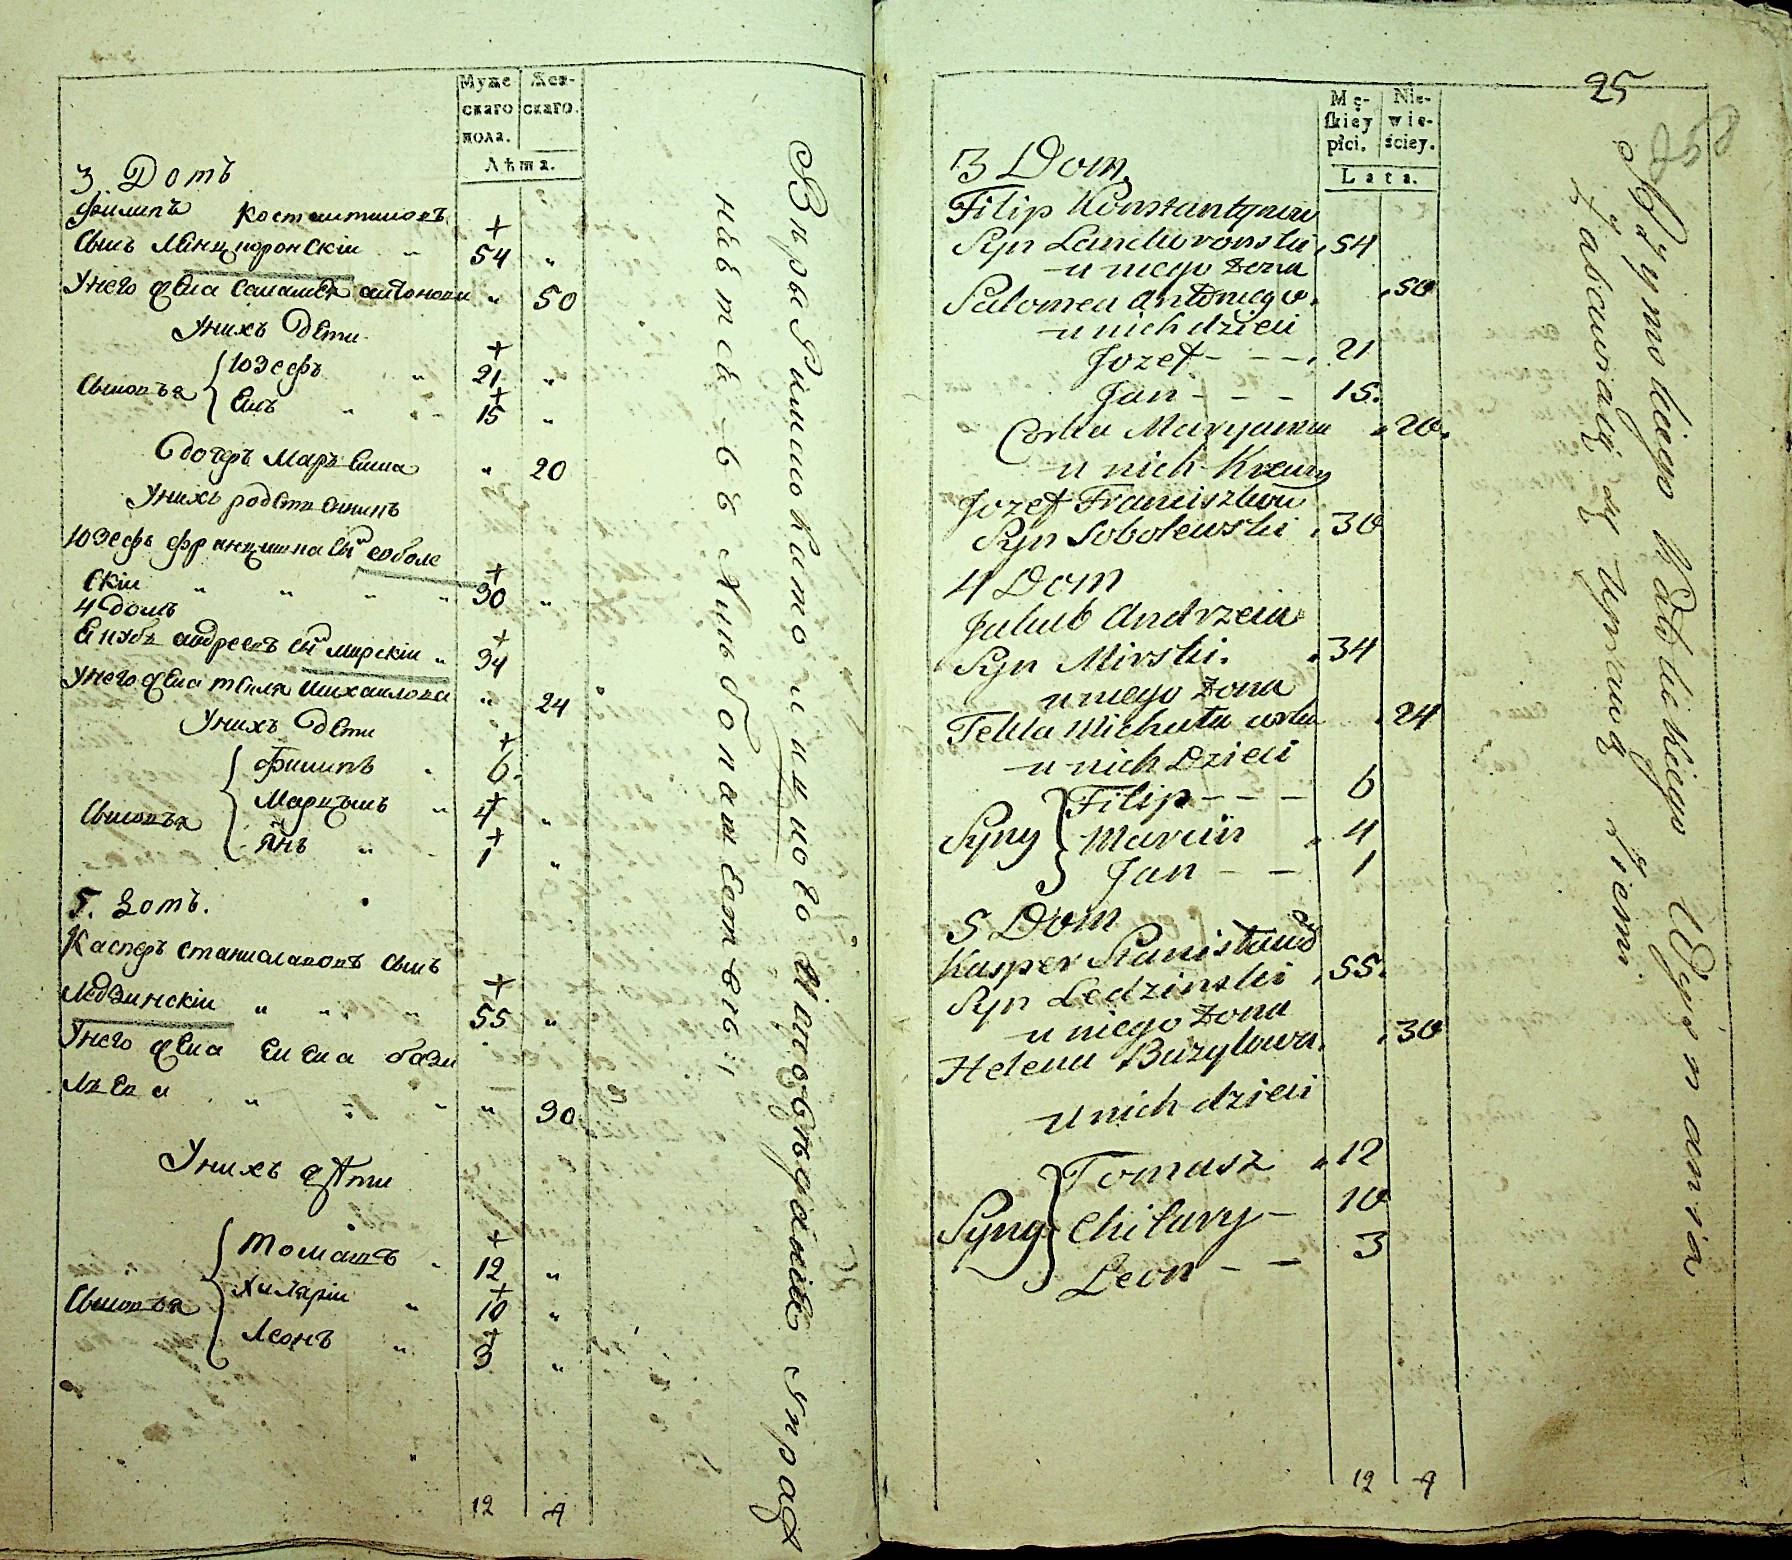 Муже
скаго
пола.
Жен-
скаго.
Лѣта.
3. Домъ
Филипъ Костантиновъ
Сынъ Ленцкоронскіи 54
Унего жена Саламея антонова 50
Унихъ дети
Сыновья
Юзефъ 21
Енъ 15
Дочерь Марьенна 20
Унихъ родственникъ
Юзефъ францишка Сынъ соболе
скіи 30
4 домъ
Енубъ андреевъ Сынъ мирскіи 34
Унего жена текля михаилова 24
Унихъ Дети
Сыновья
Филипъ 6
Марцынъ 4
Янъ 1
5. Домъ.
Касперъ станиславовъ сынъ
Ледзинскіи 55
Унего жена елена бази
лева 30
Унихъ дѣти
Сыновья
Томашъ 12
Хиляріи 10
Леонъ 3
12 4
Вѣры Римскокатолицкого Исповѣданія Упраж
няется в Хлебопашествѣ
25
Mę-
ſkiey
płci.
Nie-
wie-
ściey.
Lata.
3 Dom.
Filip Konstantynow
Syn Lanckoronski 54
u niego żona
Salomea Antoniego 50
u nich dzieci
Jozef - - - 21
Jan - - - 15.
Corka Maryanna 20.
u nich Krewny
Jozef Franciszkow
Syn Sobolewski 30
4 Dom
Jakub Andrzeia
Syn Mirski. 34
u niego żona
Tekla Michała corka 24
u nich Dzieci
Syny
Filip - - - 6
Marcin 4
Jan - - 1
5 Dom
Kasper Stanisława
Syn Ledzinski 55.
u niego żona
Helena Bazylowa. 30
u nich dzieci
Syny
Tomasz 12
Chilary - 10
Leon - - 3
12 4
Rzymskiego Katolickiego Wyznania
Zabawiaią się Uprawą Ziemi